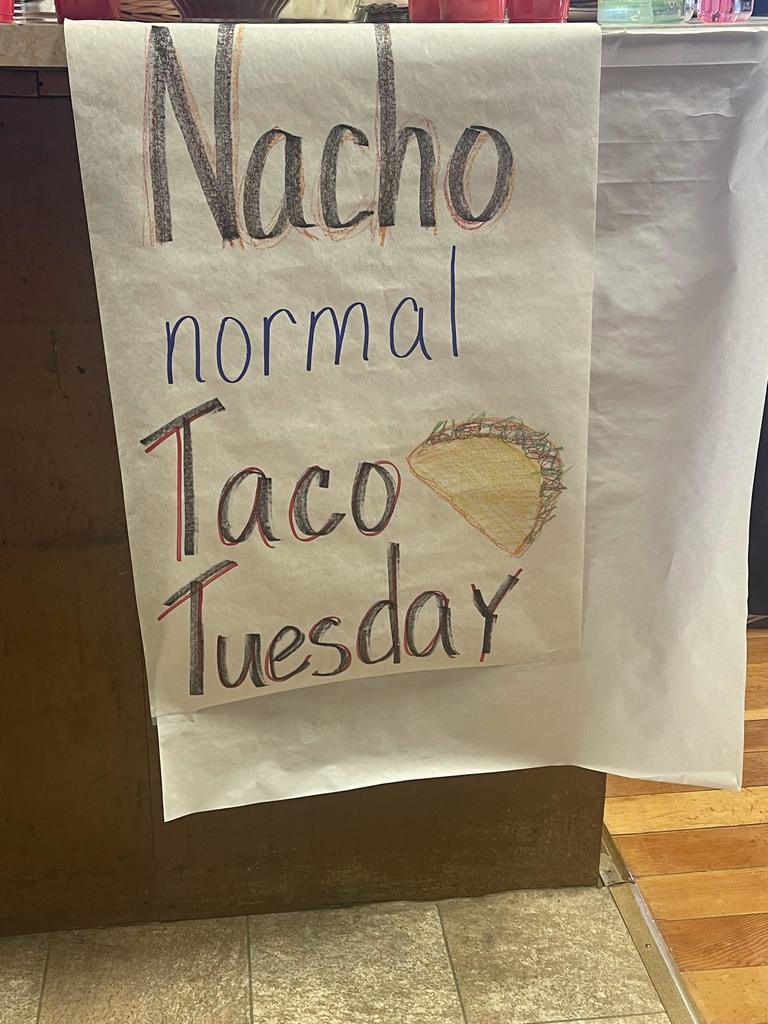 Nacho
normal
Taco
Tuesday